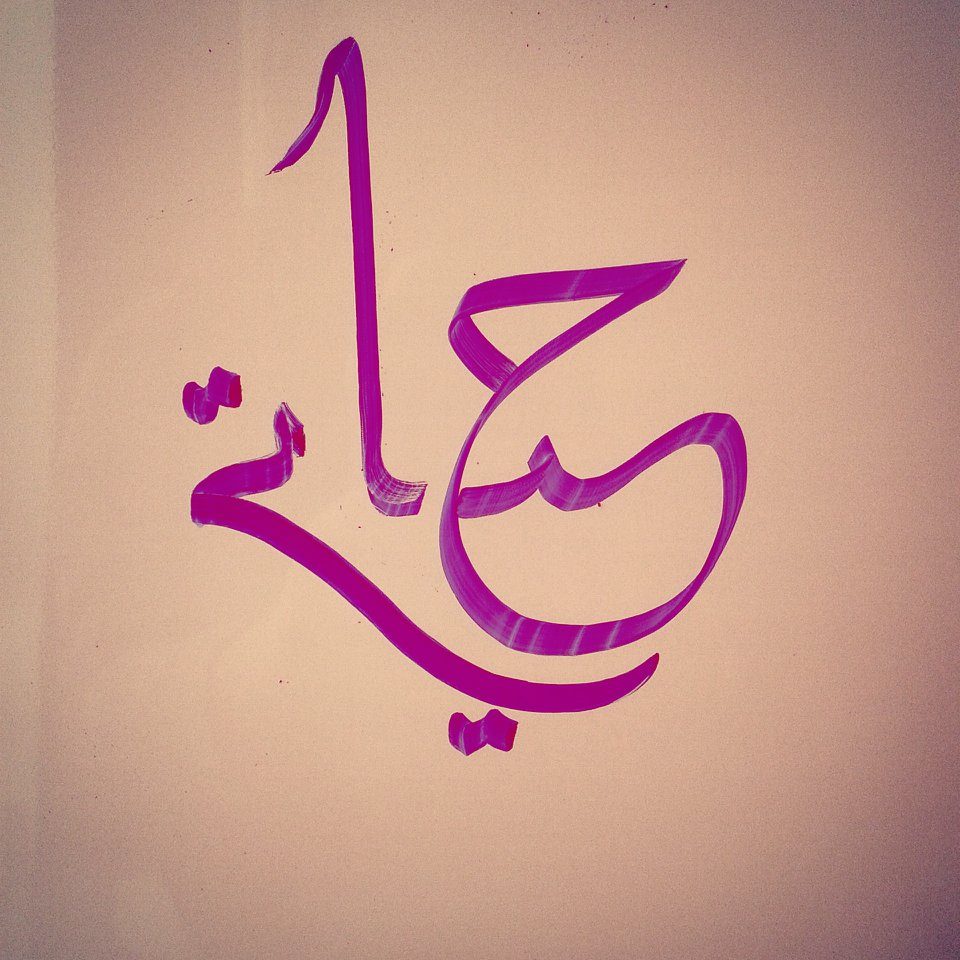 حياتي